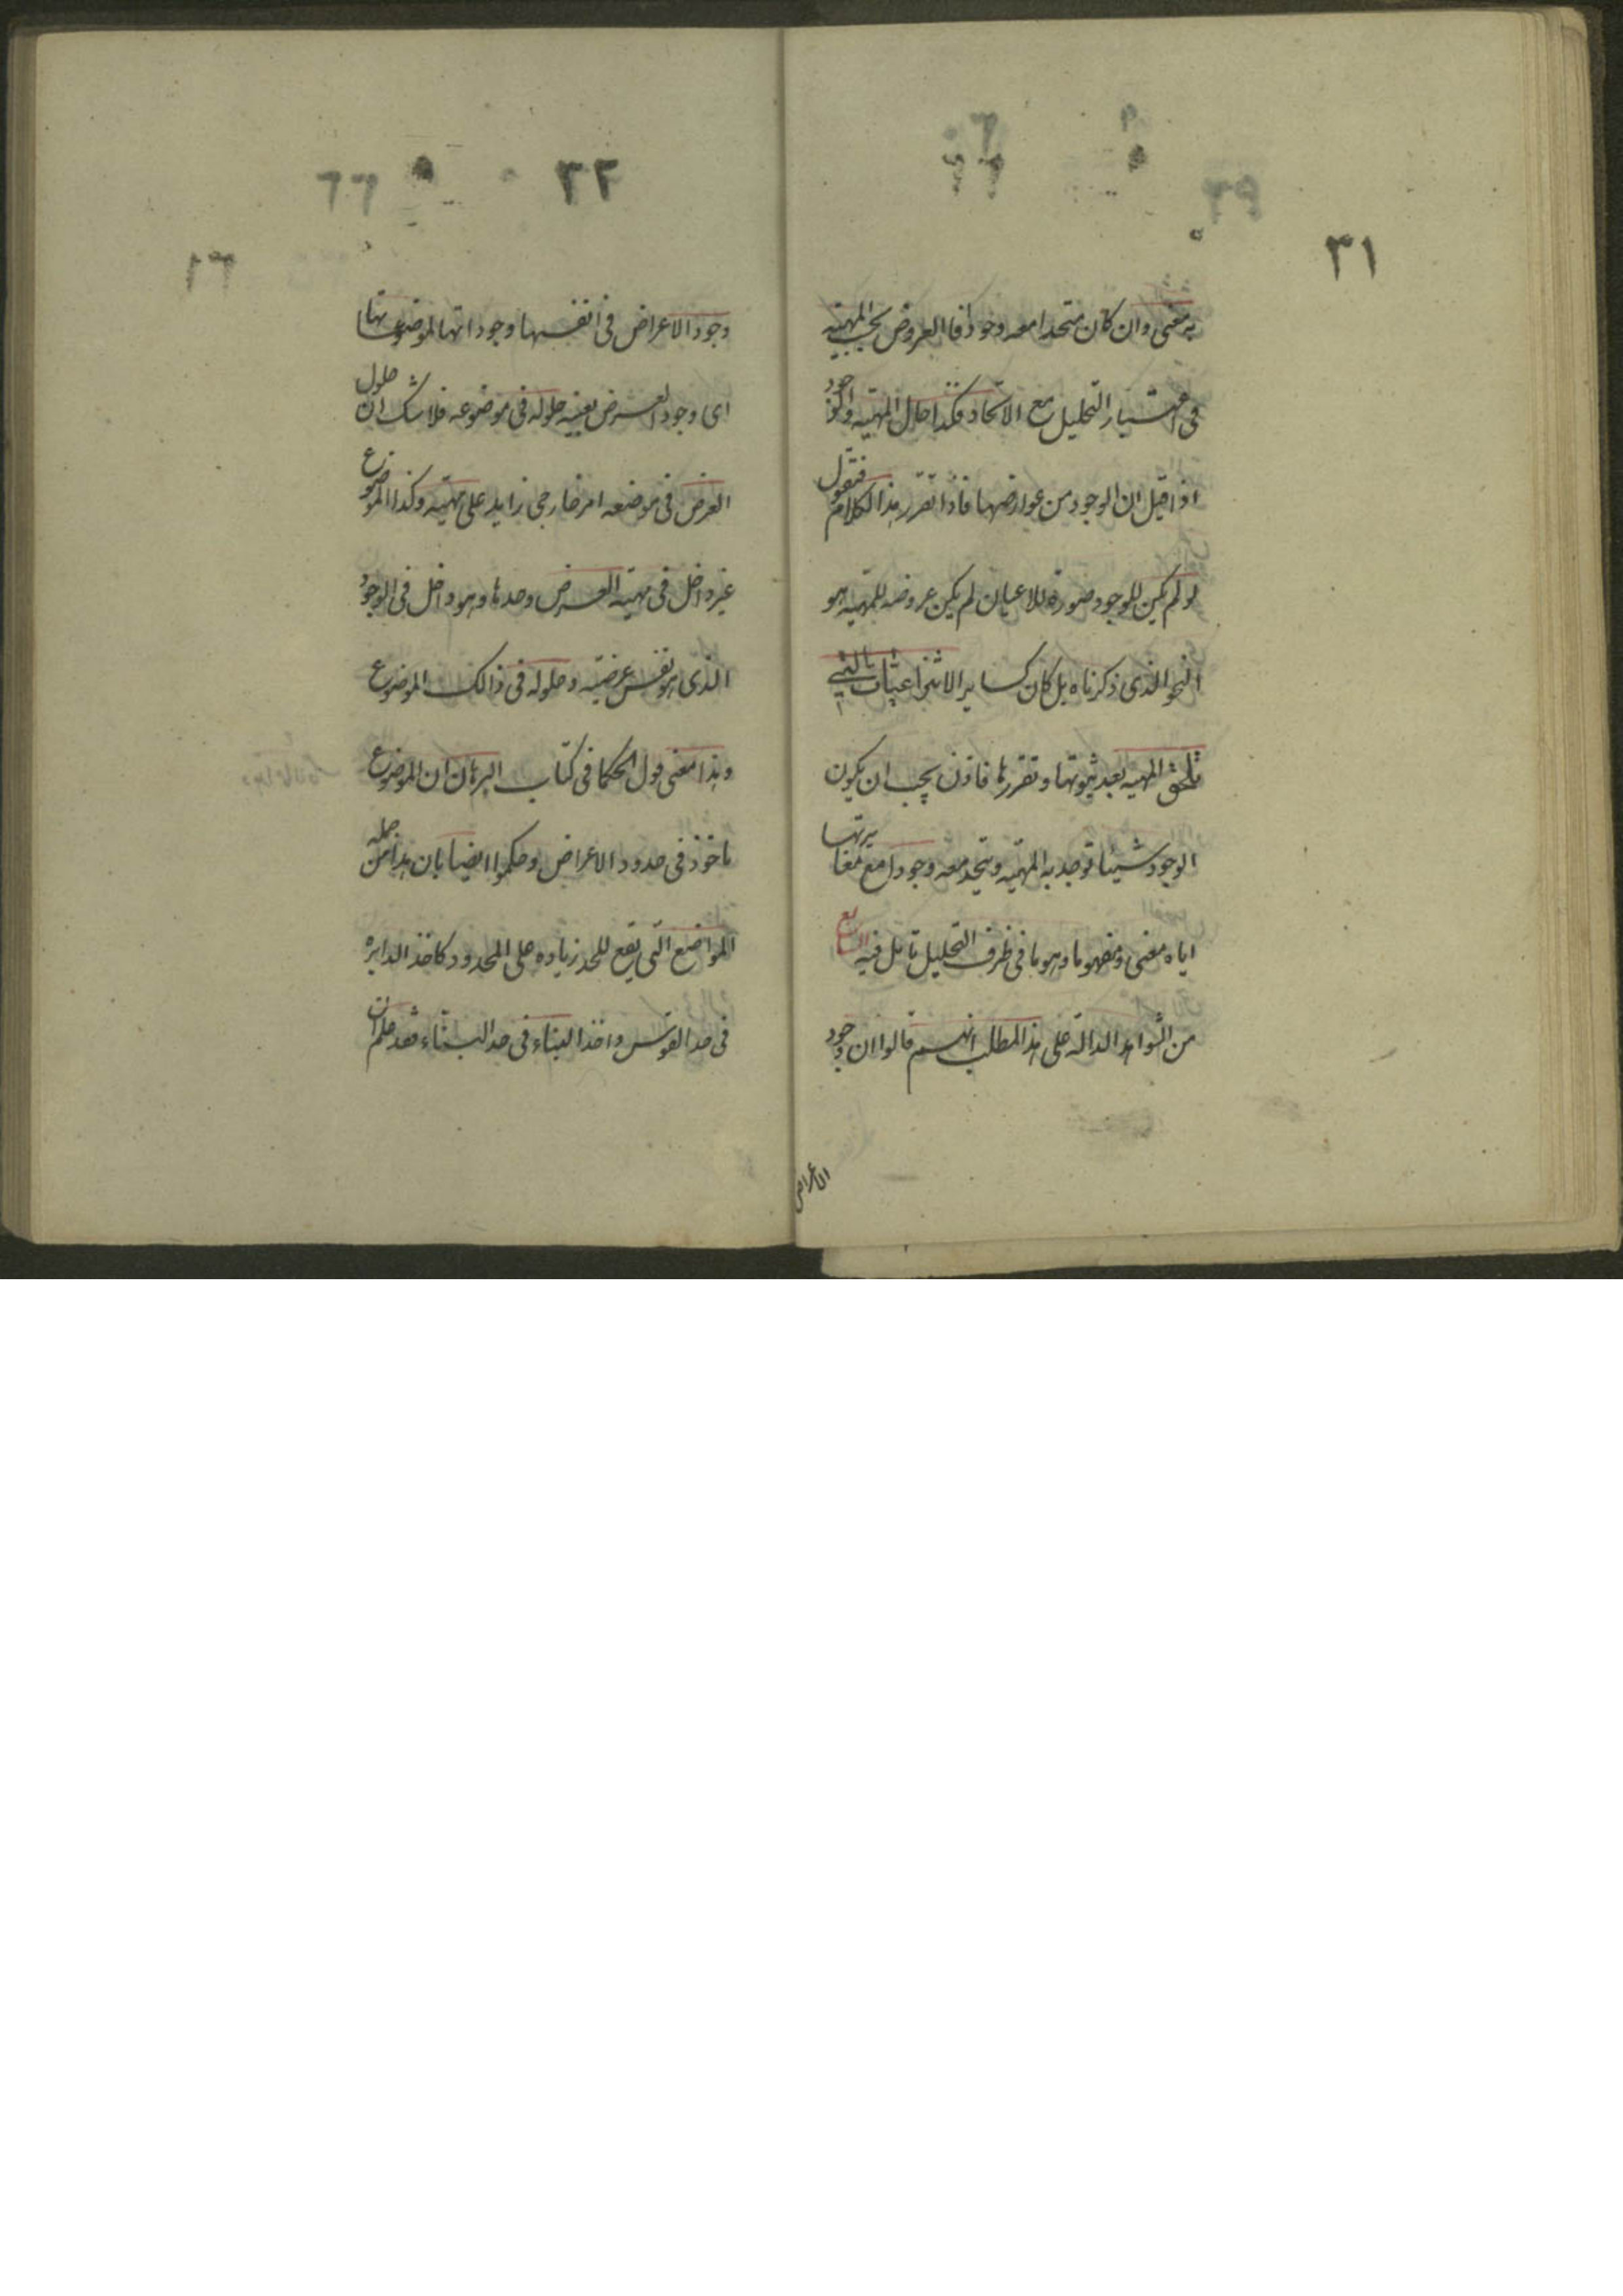 ٣١
به معنى وان كان متحدا معه وجودا فالعروض بحسب المهية
فى اعتبار التحليل مع الاتحاد فكذا حال المهية والوجود
اذا قيل ان الوجود من عوارضها فاذا تقرر هذا الكلام فنقول
لو لم يكن للوجود صورة للاعيان لم يكن عروضه للمهية هو
النحو الذى ذكرناه بل كان كساير الانتزاعيات التى
تلحق المهية بعد ثبوتها وتقررها فاذن يجب ان يكون
الوجود شيئا توجد به المهية ويتحد معه وجودا مع مغايرتها
اياه معنى ومفهوما وهوما فى ظرف التحليل تامل فيه الرابع
من الشواهد الداله على هذا المطلب انهم قالوا ان وجود
الاعراض
٣٢
وجود الاعراض فى انفسها وجوداتها لموضوعاتها
اى وجود العرض بعينه حلوله فى موضوعه فلا شك ان حلول
العرض فى موضعه امر خارجى زايد على مهيته وكذا الموضوع
غير داخل فى مهية العرض وحدها وهو داخل فى الوجود
الذى هو نفس عرضيته وحلوله فى ذالك الموضوع
وهذا معنى قول الحكما فى كتاب البرهان ان الموضوع
ماخوذ فى حدود الاعراض وحكموا ايضا بان هذا من جمله
المواضع التى يقع للحد زياده على المحدود كاخذ الدايره
فى حد القوس واخذ البناء فى حد البناء فقد علم ان